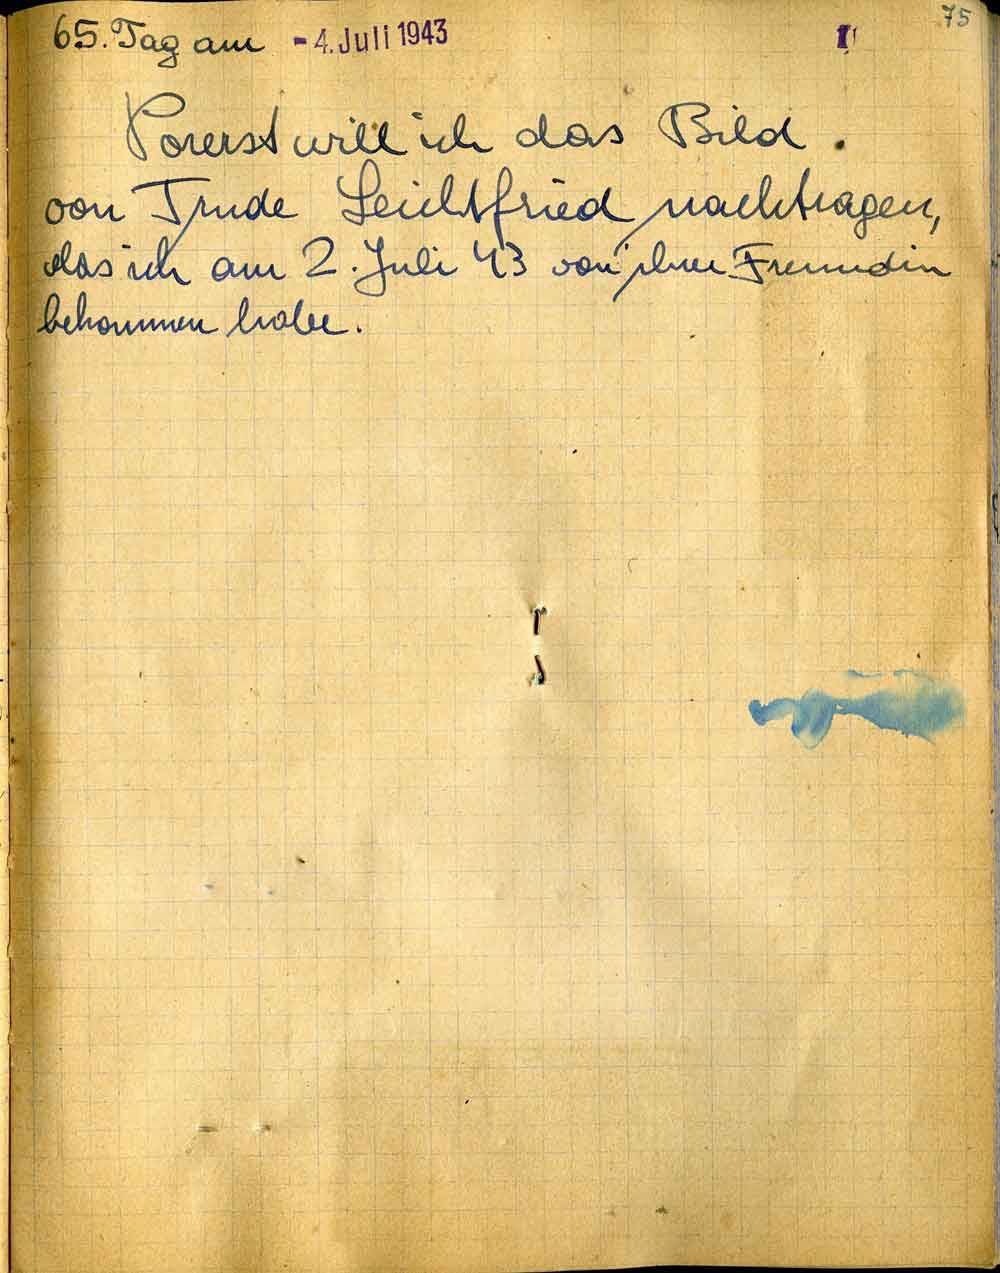 75
65. Tag am - 4. Juli 1943 I
Vorerst will ich das Bild
von Trude Leichtfried nachtragen,
das ich am 2. Juli 43 von ihrer Freundin
bekommen habe.